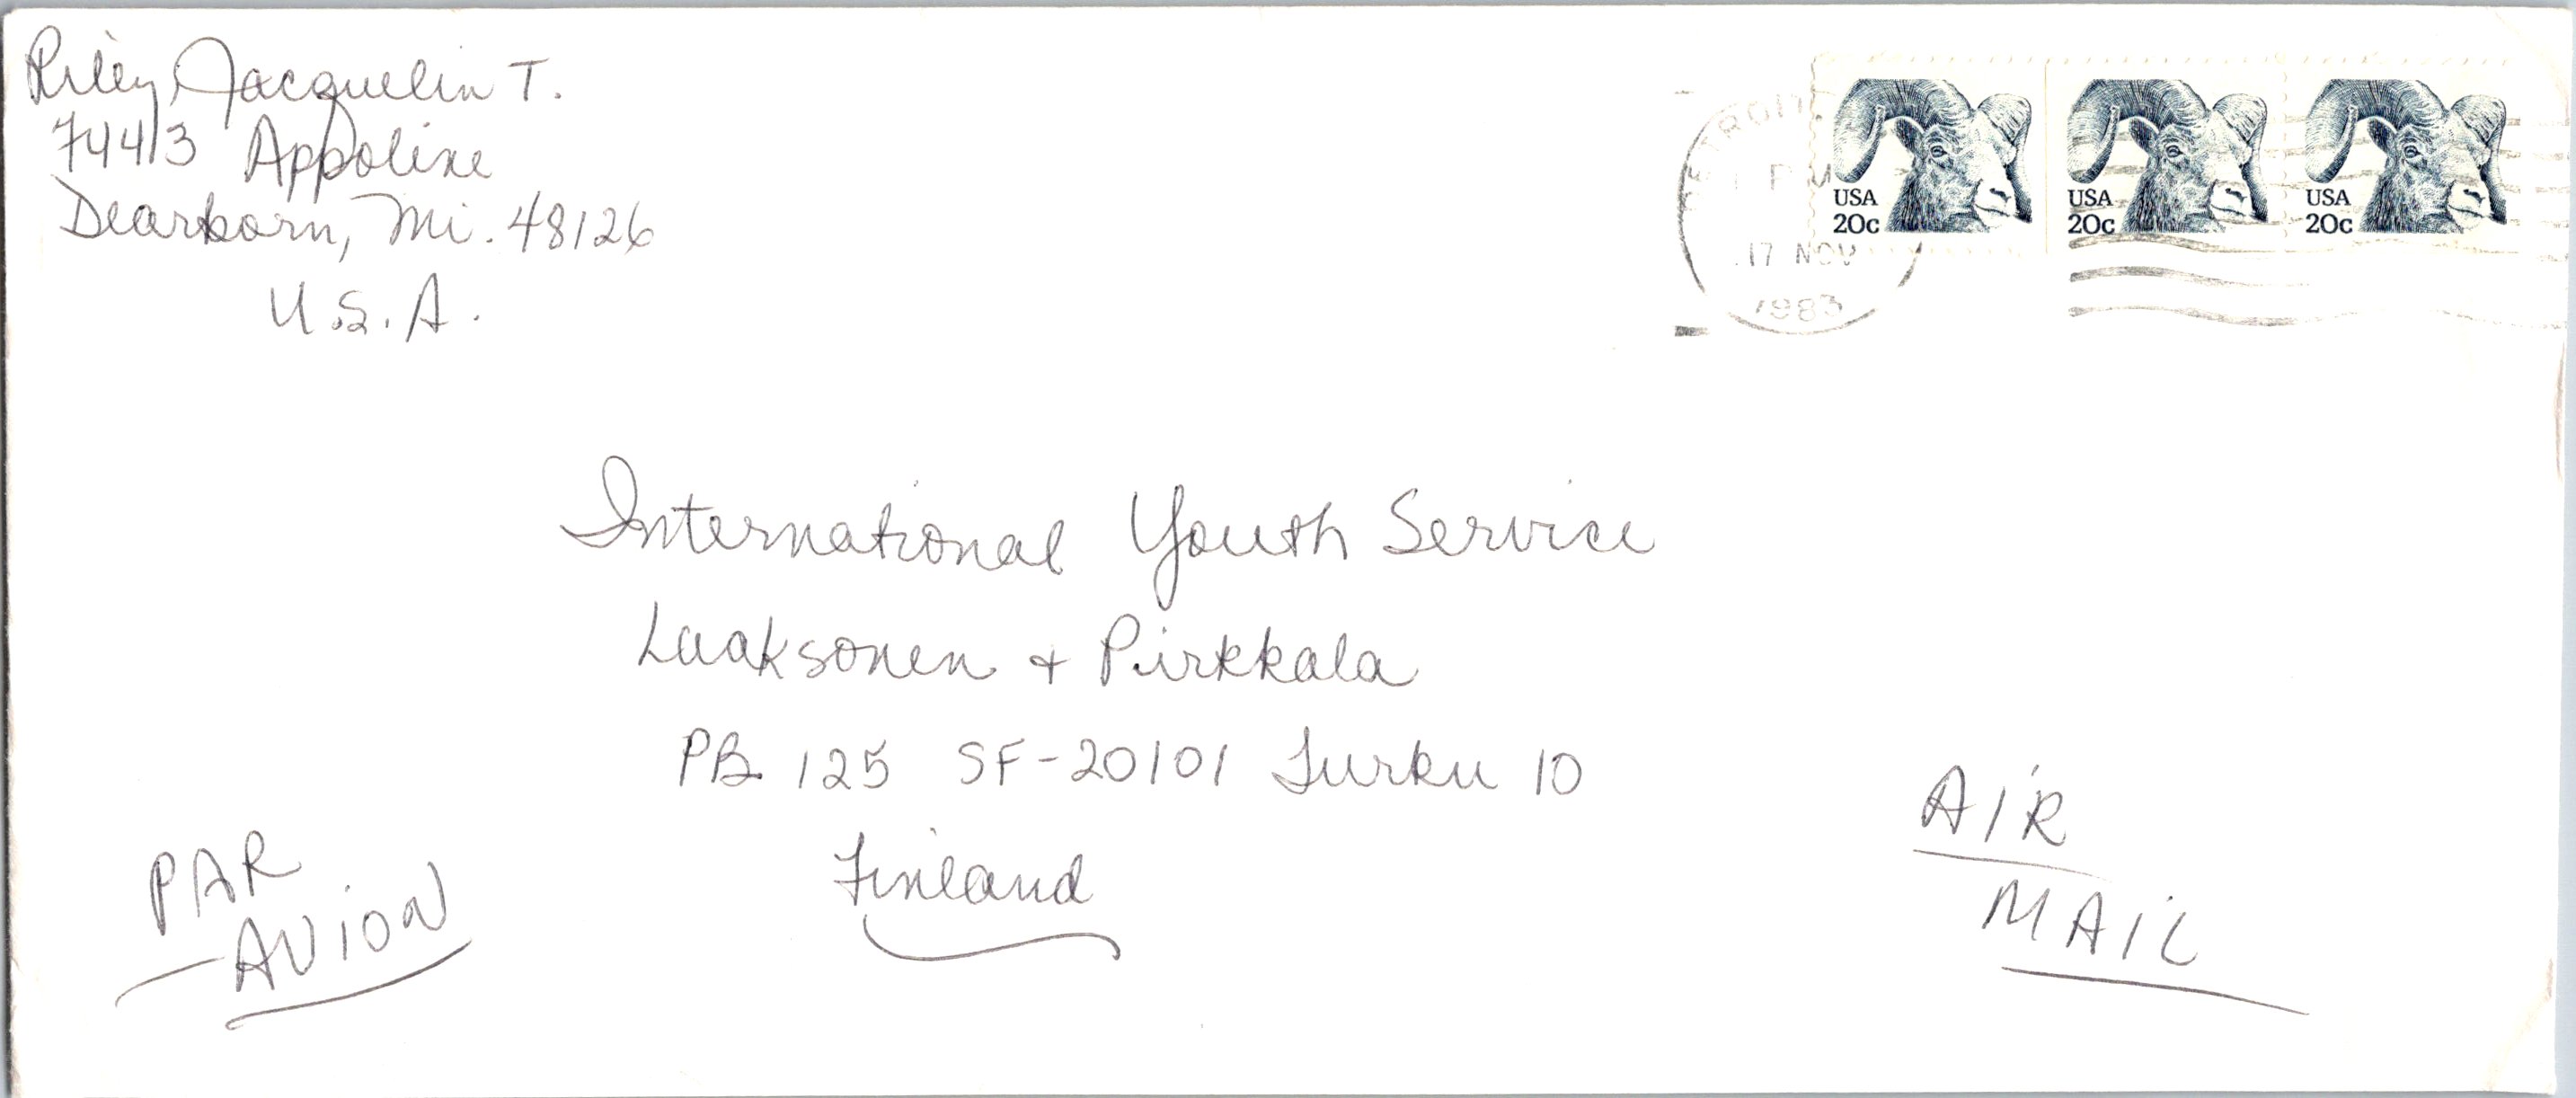 Riley, Jacquelin T.
7443 Appoline
Dearborn, Mi. 48126
U.S.A.
DETROIT,
PM
17 NOV
1983
USA
20c
USA
20c
USA
20c
International Youth Service
Laaksonen + Pirkkala
PB 125 SF-20101 Turku 10
Finland
PAR
AVION
AIR
MAIL